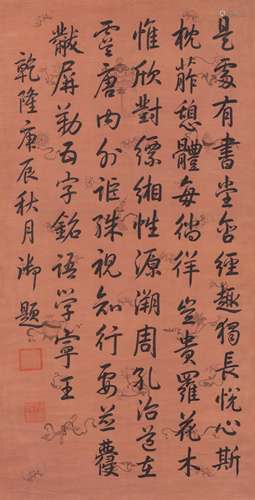 是處有書堂含經趣獨長悅心斯
枕葄憩體每徜徉豈貴羅花木
惟欣對縹緗性源溯周孔治道在
虞唐內外詎殊視知行要並蘉
黻屏勒五字銘語學寧王
乾隆庚辰秋月御題